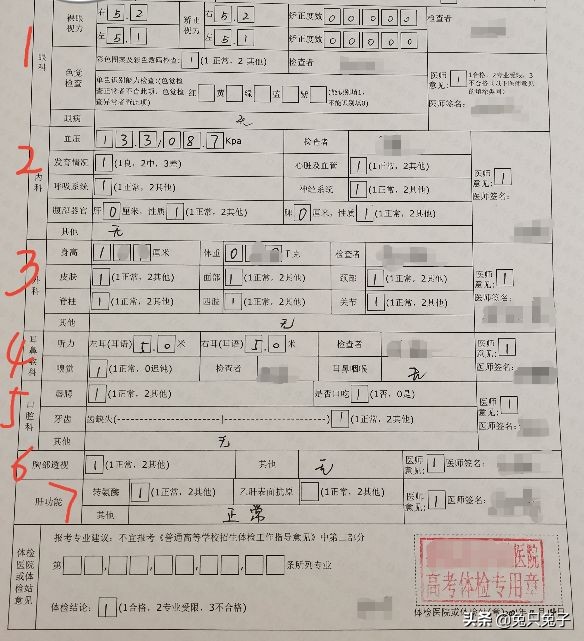 1
眼科
裸眼视力 右 5.2 矫正视力 右 5.2 矫正度数 0 0 0 0 0 检查者
左 5.1 左 5.1 矫正度数 0 0 0 0 0
色觉检查 彩色图案及彩色数码检查: 1 (1正常, 2其他) 检查者 医师意见: 1 1合格, 2专业受限, 3不合格
单色识别能力检查:(色觉检查正常者不查此项, 色觉检查异常者查此项) 红 黄 绿 蓝 紫 (能识别填1, 不能识别填0) 医师签名:
眼病 无
2
内科
血压 13.3/08.7 Kpa 检查者
发育情况 1 (1良, 2中, 3差) 心脏及血管 1 (1正常, 2其他) 医师意见: 1
呼吸系统 1 (1正常, 2其他) 神经系统 1 (1正常, 2其他) 医师签名:
腹部器官 肝 0 厘米, 性质 1 (1正常, 2其他) 脾 0 厘米, 性质 1 (1正常, 2其他)
其他 无
3
外科
身高 1 厘米 体重 0 千克 检查者
皮肤 1 (1正常, 2其他) 面部 1 (1正常, 2其他) 颈部 1 (1正常, 2其他) 医师意见: 1
脊柱 1 (1正常, 2其他) 四肢 1 (1正常, 2其他) 关节 1 (1正常, 2其他) 医师签名:
其他 无
4
耳鼻喉科
听力 左耳(耳语) 5.0 米 右耳(耳语) 5.0 米 检查者 医师意见: 1
嗅觉 1 (1正常, 0迟钝) 检查者 耳鼻咽喉 无 医师签名:
5
口腔科
唇腭 1 (1正常, 2其他) 是否口吃 1 (1否, 0是) 医师意见: 1
牙齿 齿缺失 1 (1正常, 2其他) 医师签名:
其他 无
6
胸部透视 1 (1正常, 2其他) 其他 无 医师意见: 1 医师签名:
7
肝功能 转氨酶 1 (1正常, 2其他) 乙肝表面抗原 (1正常, 2其他) 医师意见: 1 医师签名:
其他 正常
体检医院或体检站意见
报考专业建议: 不宜报考《普通高等学校招生体检工作指导意见》中第二部分
第 , , , , 条所列专业
医院
高考体检专用章
体检结论: 1 (1合格, 2专业受限, 3不合格)
体检医院或体检站(章)
头条 @兔只兔子